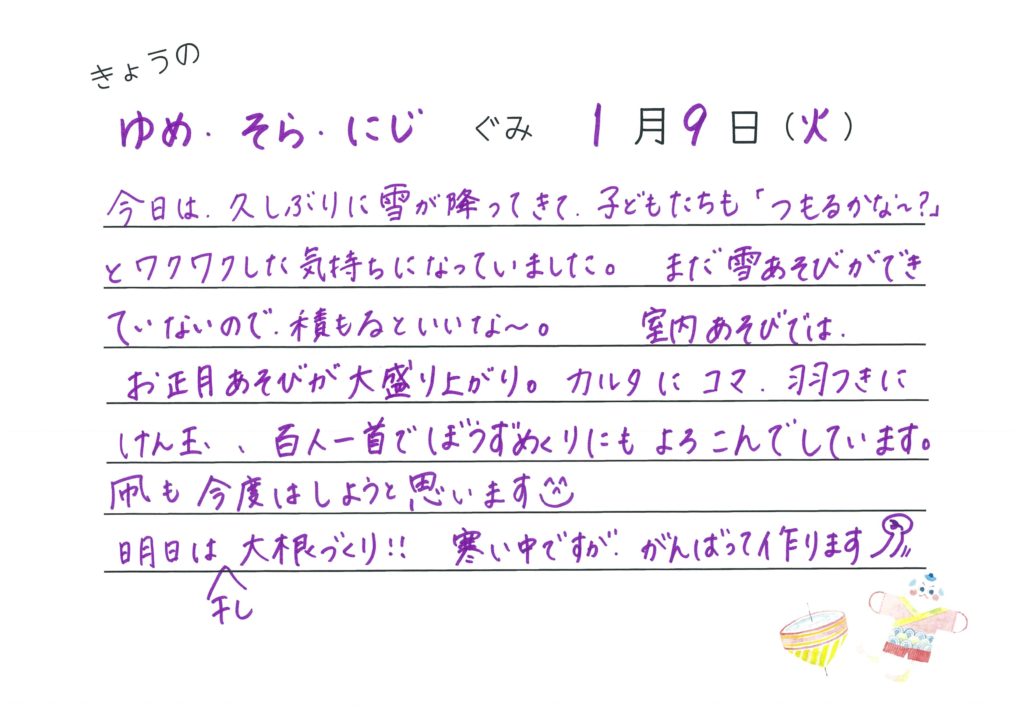 きょうの
ゆめ・そら・にじ ぐみ 1月9日(火)
今日は、久しぶりに雪が降ってきて、子どもたちも「つもるかな〜?」
とワクワクした気持ちになっていました。 まだ雪あそびができ
ていないので、積もるといいな〜。 室内あそびでは、
お正月あそびが大盛り上がり。カルタにコマ、羽つきに
けん玉、、百人一首でぼうずめくりにもよろこんでしています。
凧も今度はしようと思います
明日は大根づくり!! 寒い中ですが、がんばって作ります
干し